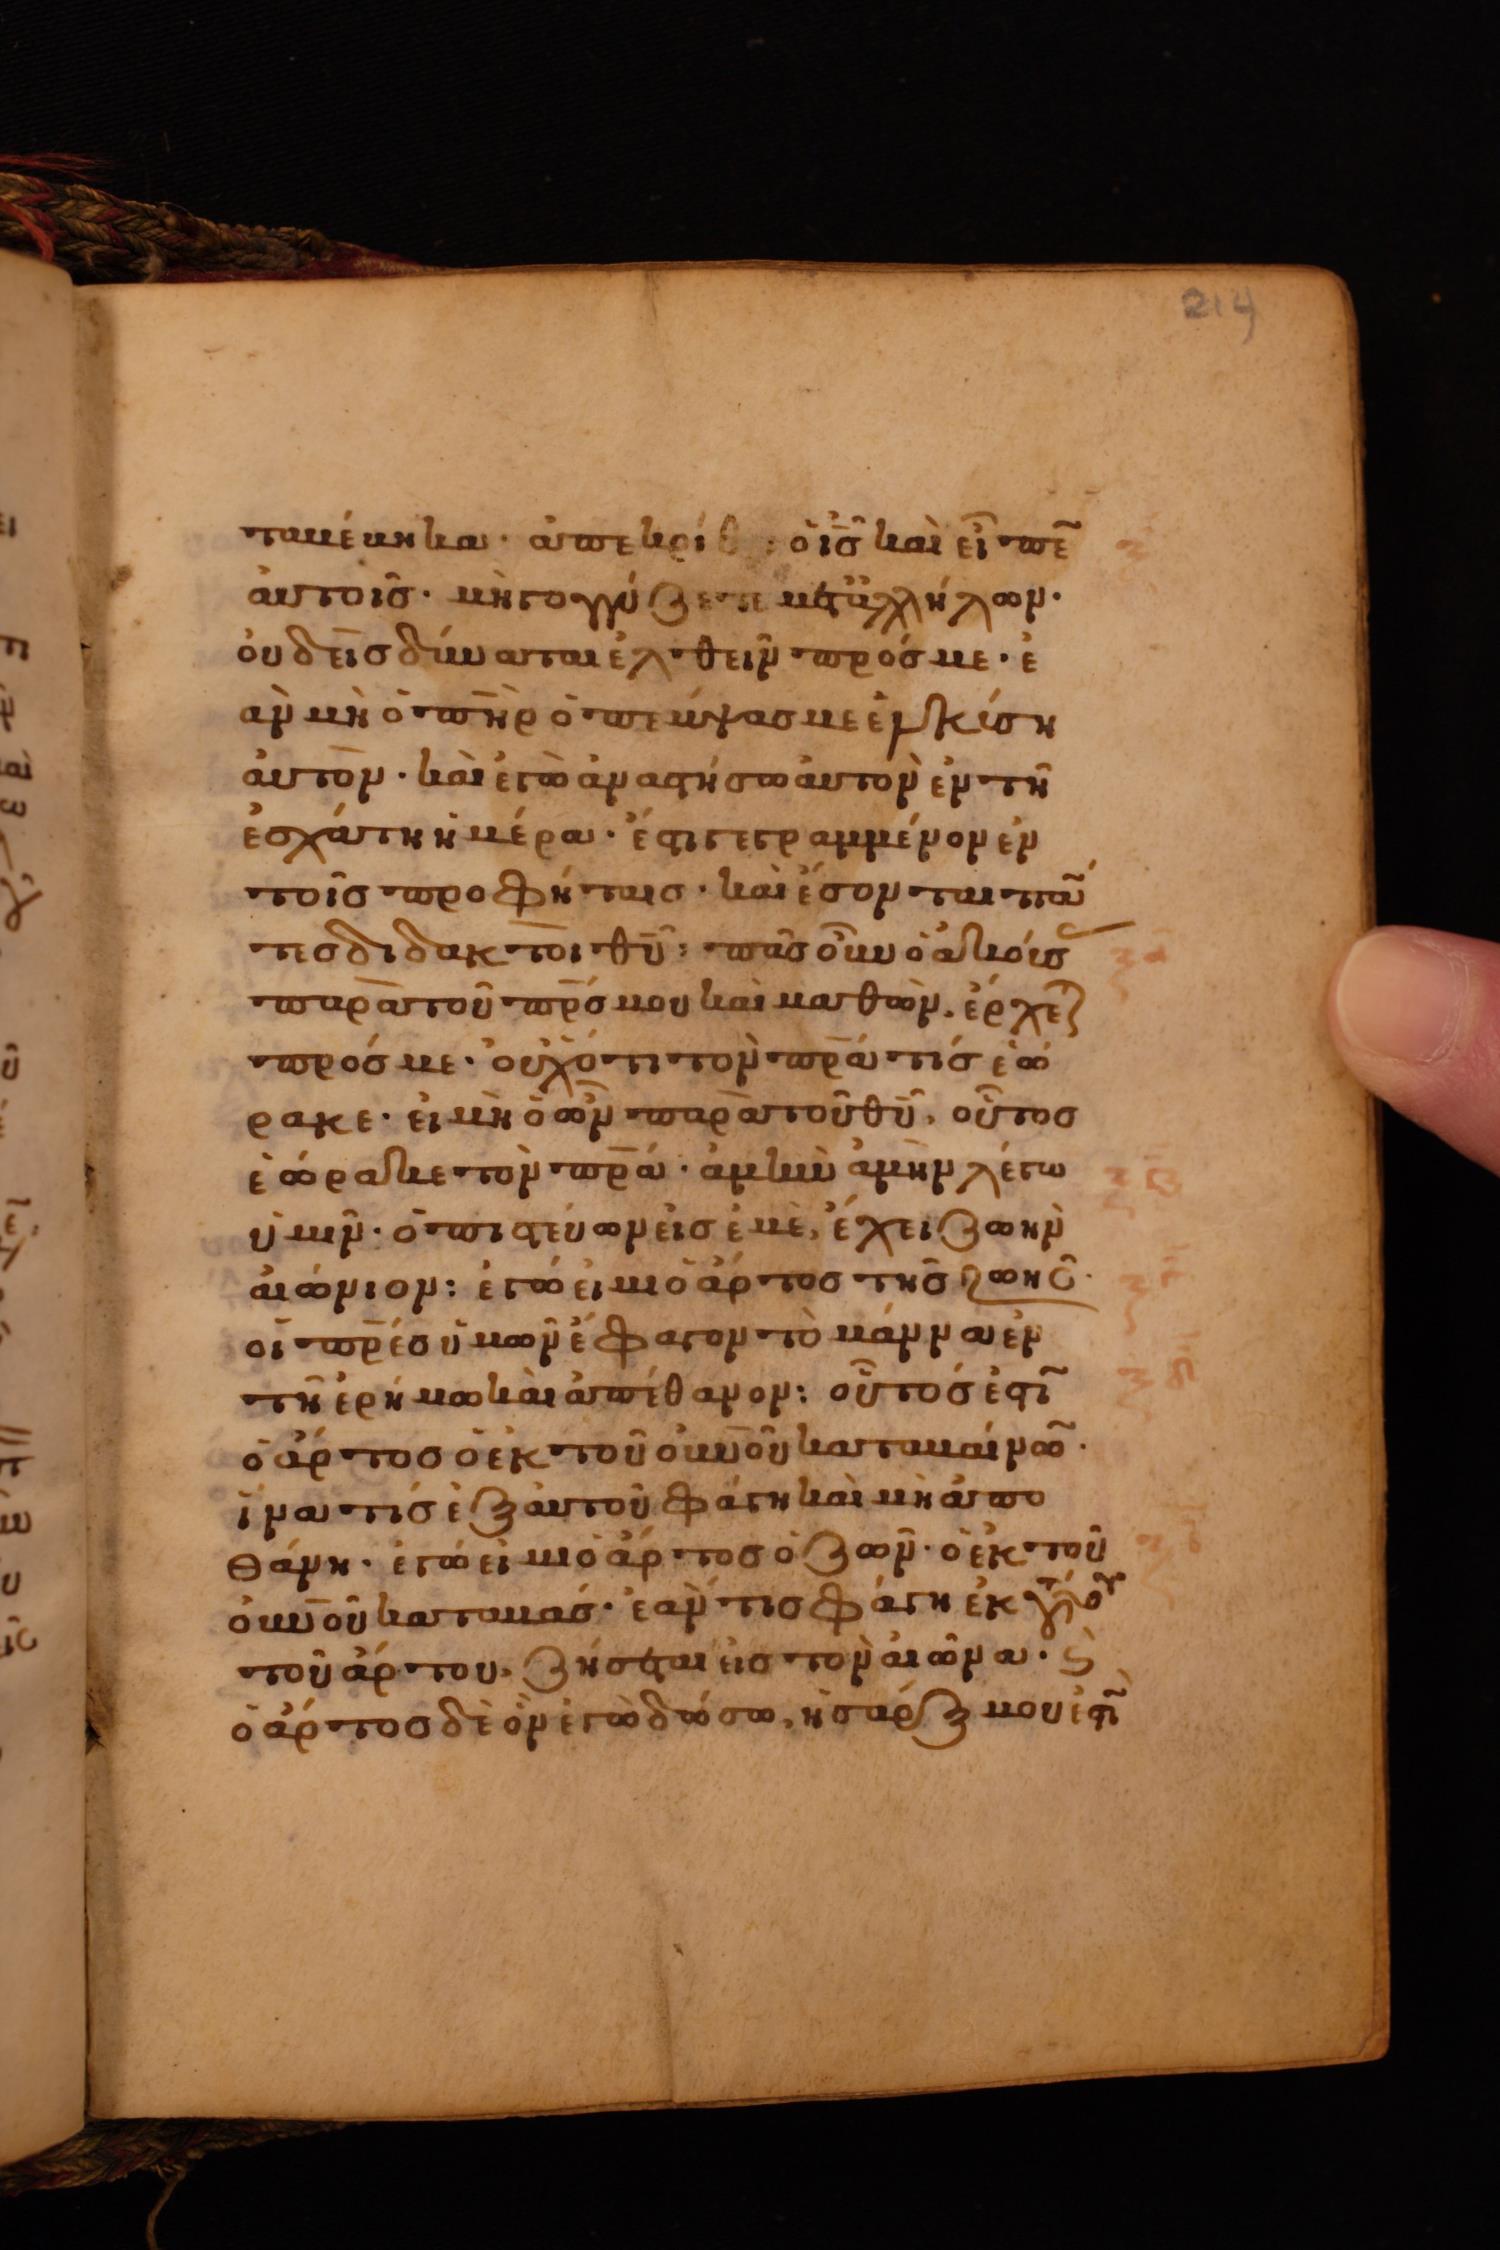 214
ταβέβηκα· ἀπεκρίθ : ὁ ις̅ καὶ εἶπε̃
ἀυτοῖς· μὴ γογγύζετε μετ᾽ἀλλήλων·
ὀυδεὶς δύναται ἐλθεῖν πρός με· ἐ
ὰν μὴ ὁ πη̅ρ ὁ πέμψας με ἑλκύση
ἀυτὸν· καὶ ἐγὼ ἀναστήσω ἀυτὸν ἐν τῆ
ἐσχάτη ἡμέρα· ἔστι γεγραμμένον ἐν
τοῖς προφήταις· καὶ ἔσονται πά̃
τες διδακτοὶ θυ̅: πᾶς οὖν ὁ ἀκούς
παρὰ τοῦ πρ̅ς μου καὶ μαθὼν, ἔρχετ
πρός με· οὐχ᾽ ὅτι τὸν πρ̅α τίς ἑώ
ρακε· εἰ μὴ ὁ ὢν παρὰ τοῦ θυ̅, οὗτος
ἑώρακε τὸν πρ̅α· ἀμὴν ἀμὴν λέγω
ὑμῖν· ὁ πιστεύων εἰς ἐμὲ, ἔχει ζωὴν
ἀιώνιον: ἐγώ εἰμι ὁ ἄρτος τῆς ζωῆς·
οἱ πρ̅ές ὑμῶν ἔφαγον τὸ μάννα ἐν
τῆ ἐρήμω καὶ ἀπέθανον: οὗτός ἐστι̃
ὁ ἄρτος ὁ ἐκ τοῦ ὀυν̅οῦ καταβαίνω̃·
ἵνα τίς ἐξ ἀυτοῦ φάγη καὶ μὴ ἀπο
θάνη· ἐγώ εἰμι ὁ ἄρτος ὁ ζῶν· ὁ ἐκ τοῦ
ὀυν̅οῦ καταβάς· ἐάν τις φάγη ἐκ τούτου
τοῦ ἄρτου, ζήσεται εἰς τὸν ἀιῶνα· ϗ
ὁ ἄρτος δὲ ὃν ἐγὼ δώσω, ἡ σάρξ μου ἐστι̃